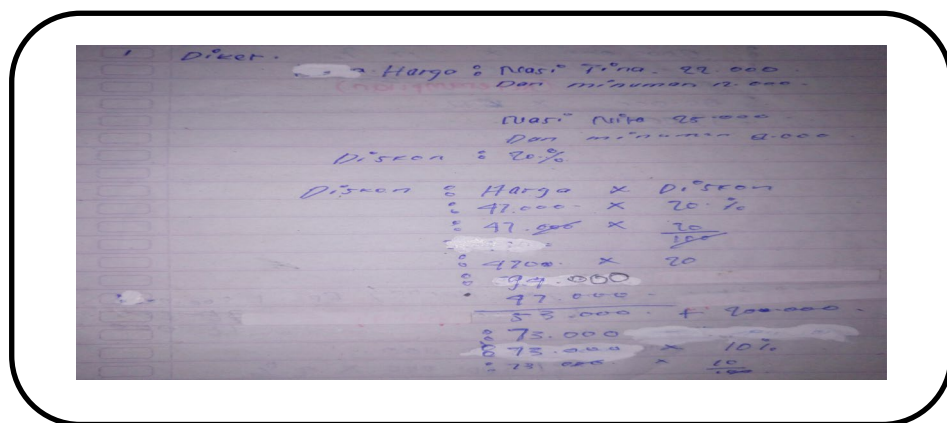 1 Diket.
Harga : Nasi Tina. 22.000
Dan minuman 12.000.
Nasi Nita 25.000
Dan minuman 8.000
Diskon : 20.%
Diskon : Harga x Diskon
: 47.000 x 20.%
: 47.000 x 20/100
: 4700 x 20
: 94.000
47.000
53.000 + 200.000.
: 73.000
: 73.000 x 10%
: 73.000 x 10/100